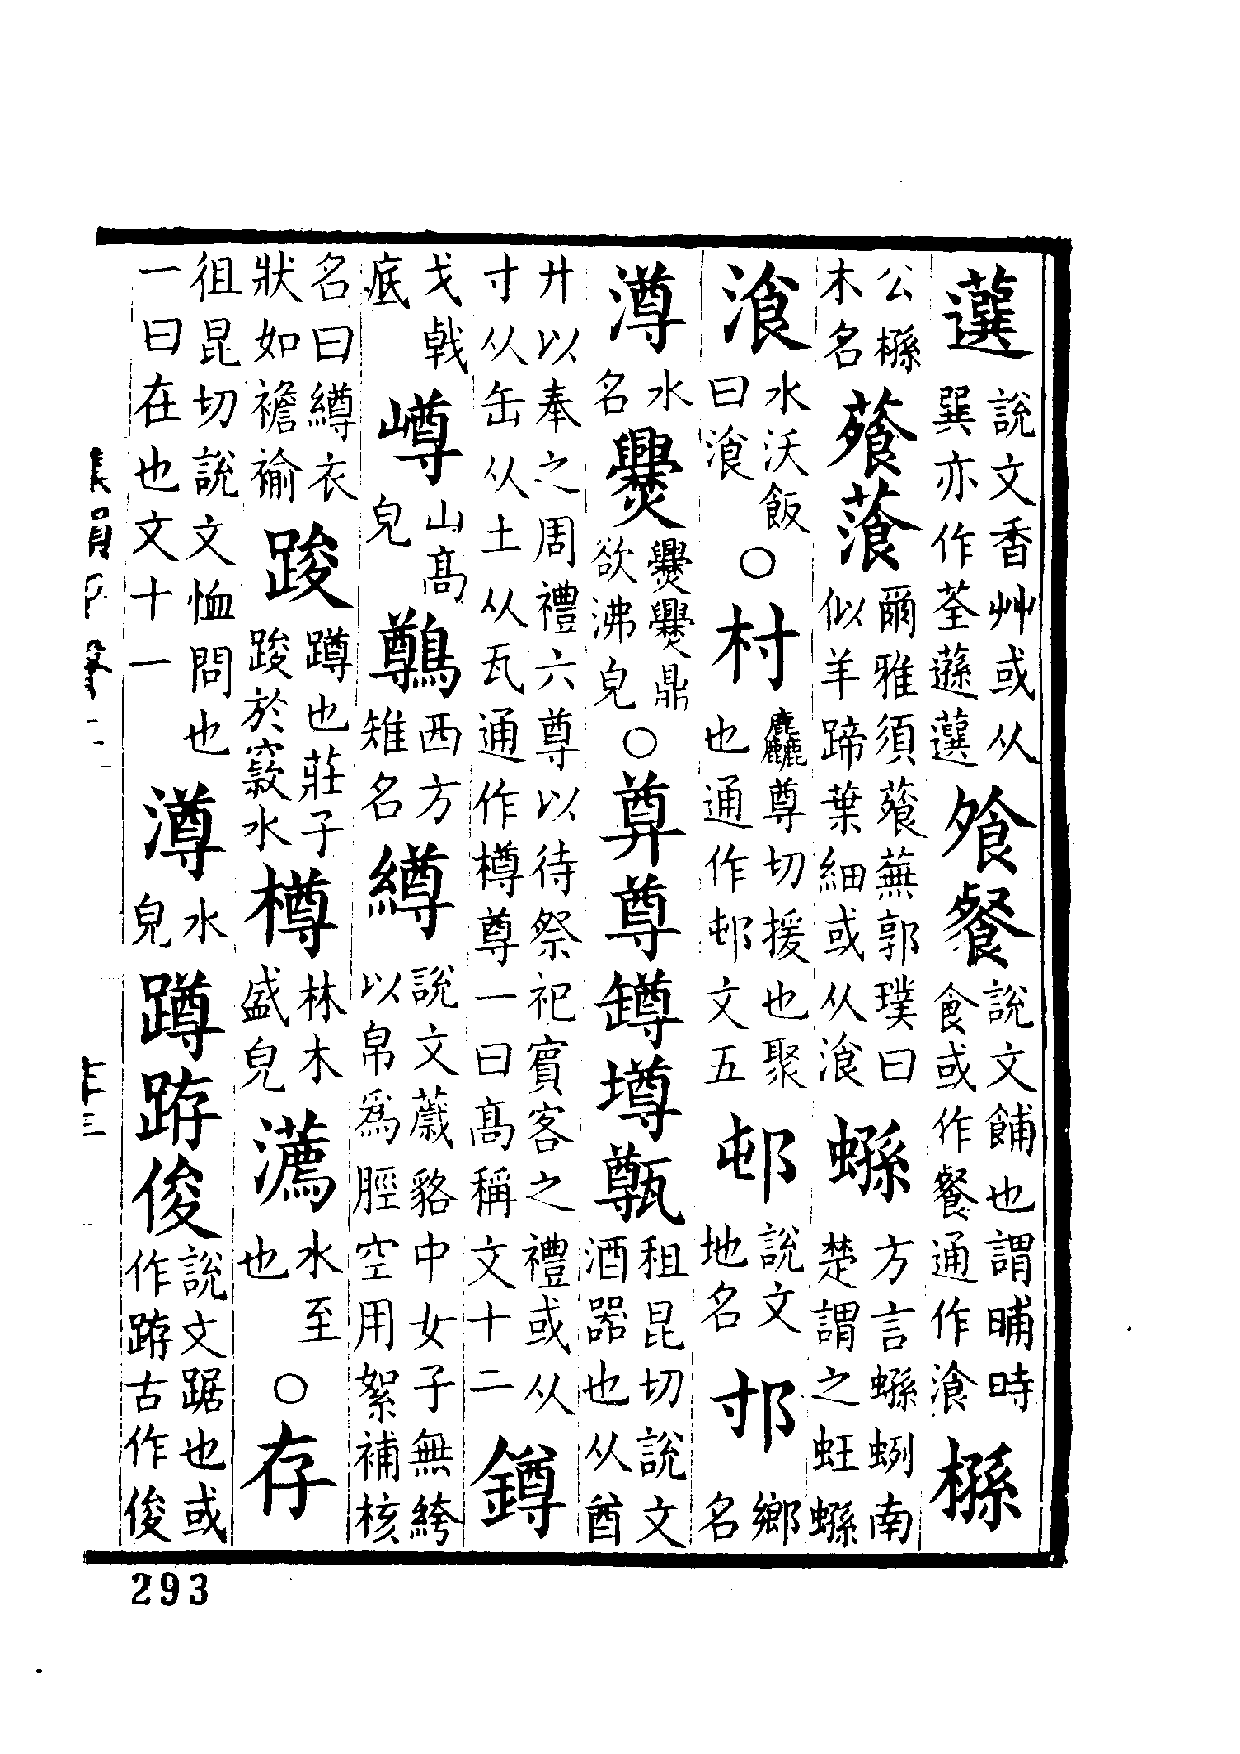 說文香艸或从巽亦作荃蓀 飱餐 說文餔也謂晡時食或作餐通作湌 槂
公槂木名 蕵 爾雅須蕵蕪郭璞曰似羊蹄葉細或从湌 方言 蛚南楚謂之蛀
湌 水沃飯曰湌 ○ 村 麤尊切援也聚也通作邨文五 邨 說文地名 鄉名
澊 水名 爨 爨爨鼎欲沸皃 ○ 尊 罇 墫 租昆切說文酒器也从酋
廾以奉之周禮六尊以待祭祀賓客之禮或从寸从缶从土从瓦通作樽尊一曰高稱文十二 鐏
戈戟底 嶟 山高皃 鷷 西方雉名 繜 說文薉貉中女子無絝以帛爲脛空用絮補核
名曰繜衣狀如襜褕 踆 蹲也莊子踆於窾水 樽 林木盛皃 瀳 水至也 ○ 存
徂昆切說文恤問也一曰在也文十一 澊 水皃 蹲 俊 說文踞也或作 古作俊
293